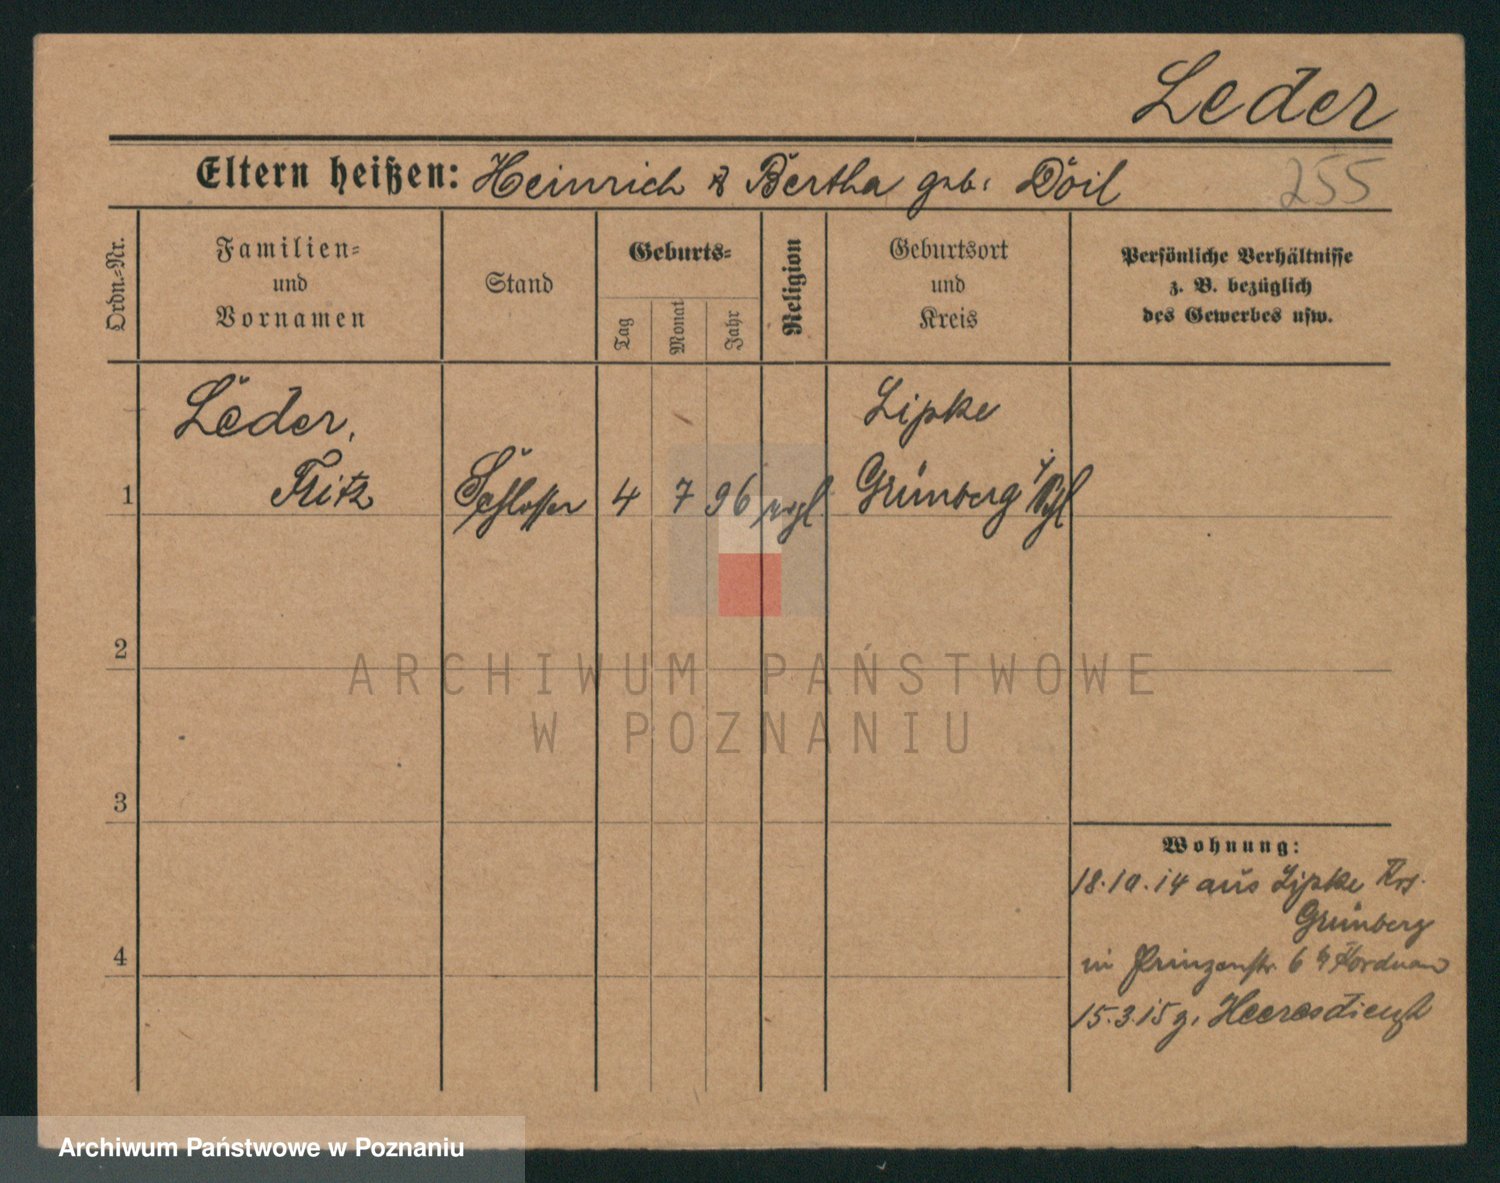 Leder
Eltern heißen: Heinrich & Bertha geb. Döil
255
Ordn.-Nr.
Familien-
und
Vornamen
Stand
Geburts-
Tag
Monat
Jahr
Religion
Geburtsort
und
Kreis
Persönliche Verhältnisse
z. B. bezüglich
des Gewerbes usw.
Leder,
Lipke
1 Fritz Schlosser 4 7 96 evgl Grünberg
2
ARCHIWUM PAŃSTWOWE
W POZNANIU
3
Wohnung:
18.10.14 aus Lipke Krs.
Grünberg
4
in Prinzenstr. 6
15.3.15 z. Heeresdienst
Archiwum Państwowe w Poznaniu